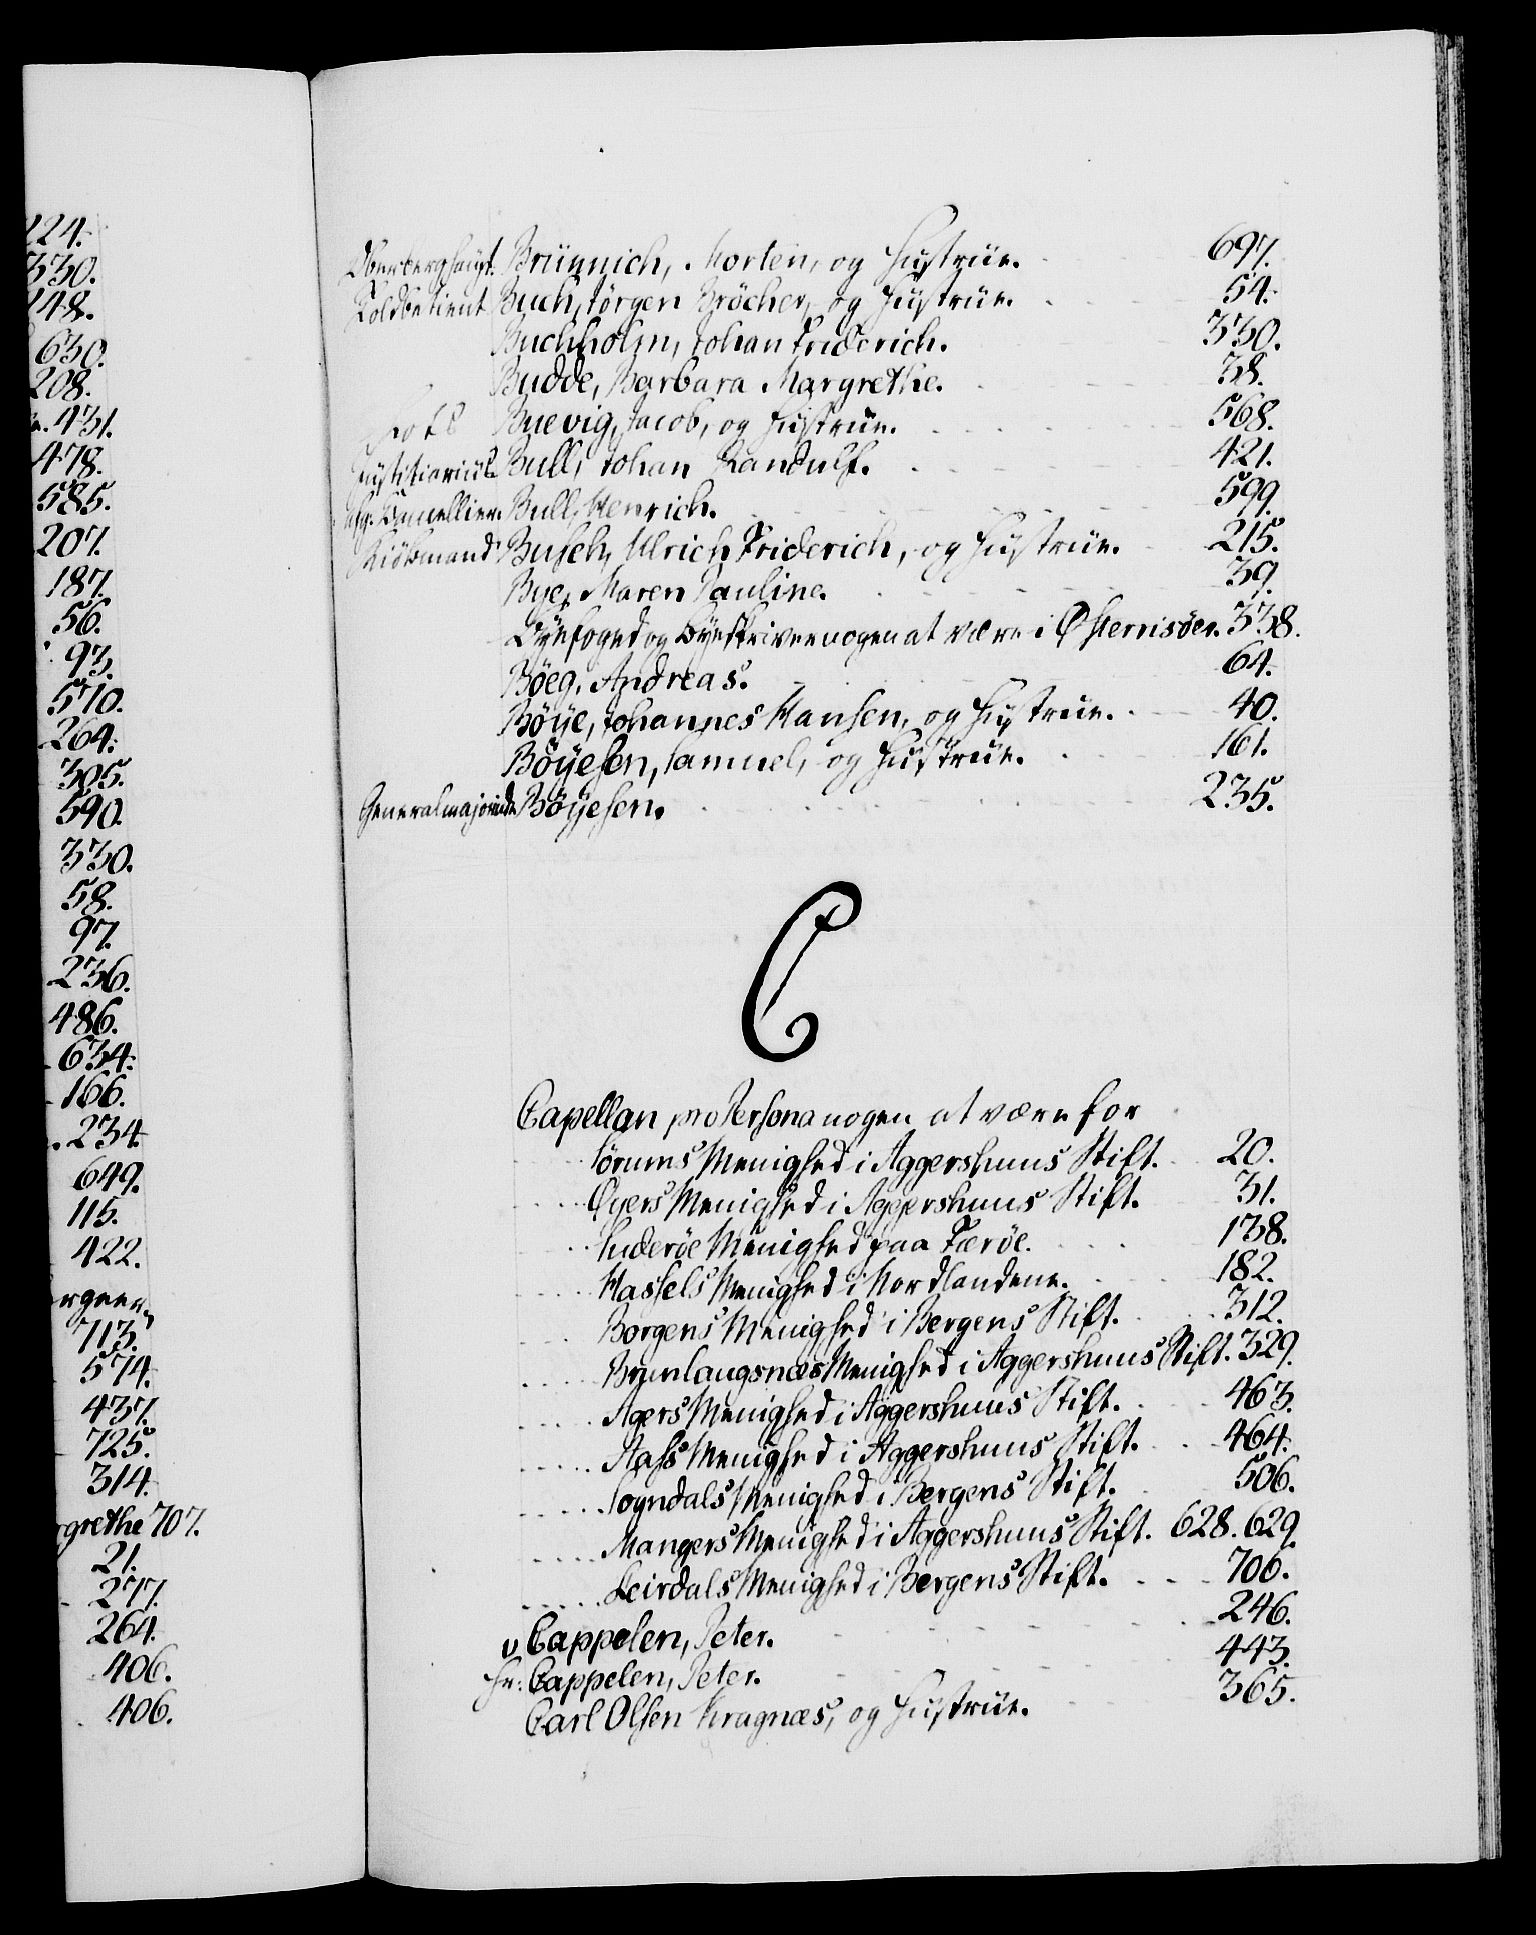 224.
330.
248.
630.
208.
431.
478.
585.
207.
187.
56.
93.
570.
264.
305.
590.
330.
58.
97.
236.
486.
634.
166.
234.
649.
115.
422.
713.
574.
437.
725.
314.
grethe 707.
21.
277.
264.
406.
406.
Oberberghaupt. Brünnich, Morten, og Hustrue. 697.
Toldbetient Buch, Jörgen Bröcher, og Hustrue. 54.
Buchholm, Johan Friderich. 330.
Budde, Barbara Margrethe. 38.
Buevig, Jacob, og Hustrue. 568.
Justitiarius Bull, Johan Randulf. 421.
Bull, Henrich. 599.
Kiöbmand Busch, Ulrich Friderich, og Hustrue. 215.
Bye, Maren Pauline. 39.
Byefoged og Byeskriver nogen at være i Østerrisöer. 338.
Böeg, Andreas. 64.
Böye, Johannes Hansen, og Hustrue. 40.
Böyesen, Samuel, og Hustrue. 161.
Generalmajorinde Böyesen. 235.
C
Capellan pro Persona nogen at være for
Sörums Menighed i Aggershuus Stift. 20.
Öyers Menighed i Aggershuus Stift. 31.
Suderöe Menighed paa Færöe. 138.
Hassels Menighed i Nordlandene. 182.
Borgens Menighed i Bergens Stift. 312.
Brunlaugsnæs Menighed i Aggershuus Stift. 329.
Agers Menighed i Aggershuus Stift. 463.
Menighed i Aggershuus Stift. 464.
Sogndals Menighed i Bergens Stift. 506.
Mangers Menighed i Aggershuus Stift. 628. 629.
Leirdals Menighed i Bergens Stift. 706.
v Cappelen, Peter. 246.
Cappelen, Peter. 443.
Carl Olsen Kragnæs, og Hustrue. 365.